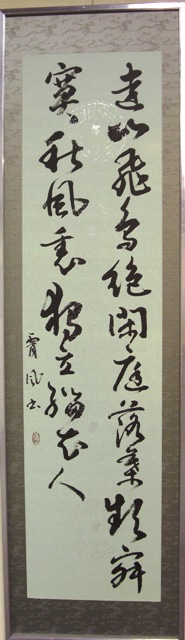 遠山飛鳥絶閑庭落葉頻寂
寞秋風裏独立緇衣人
霄風書